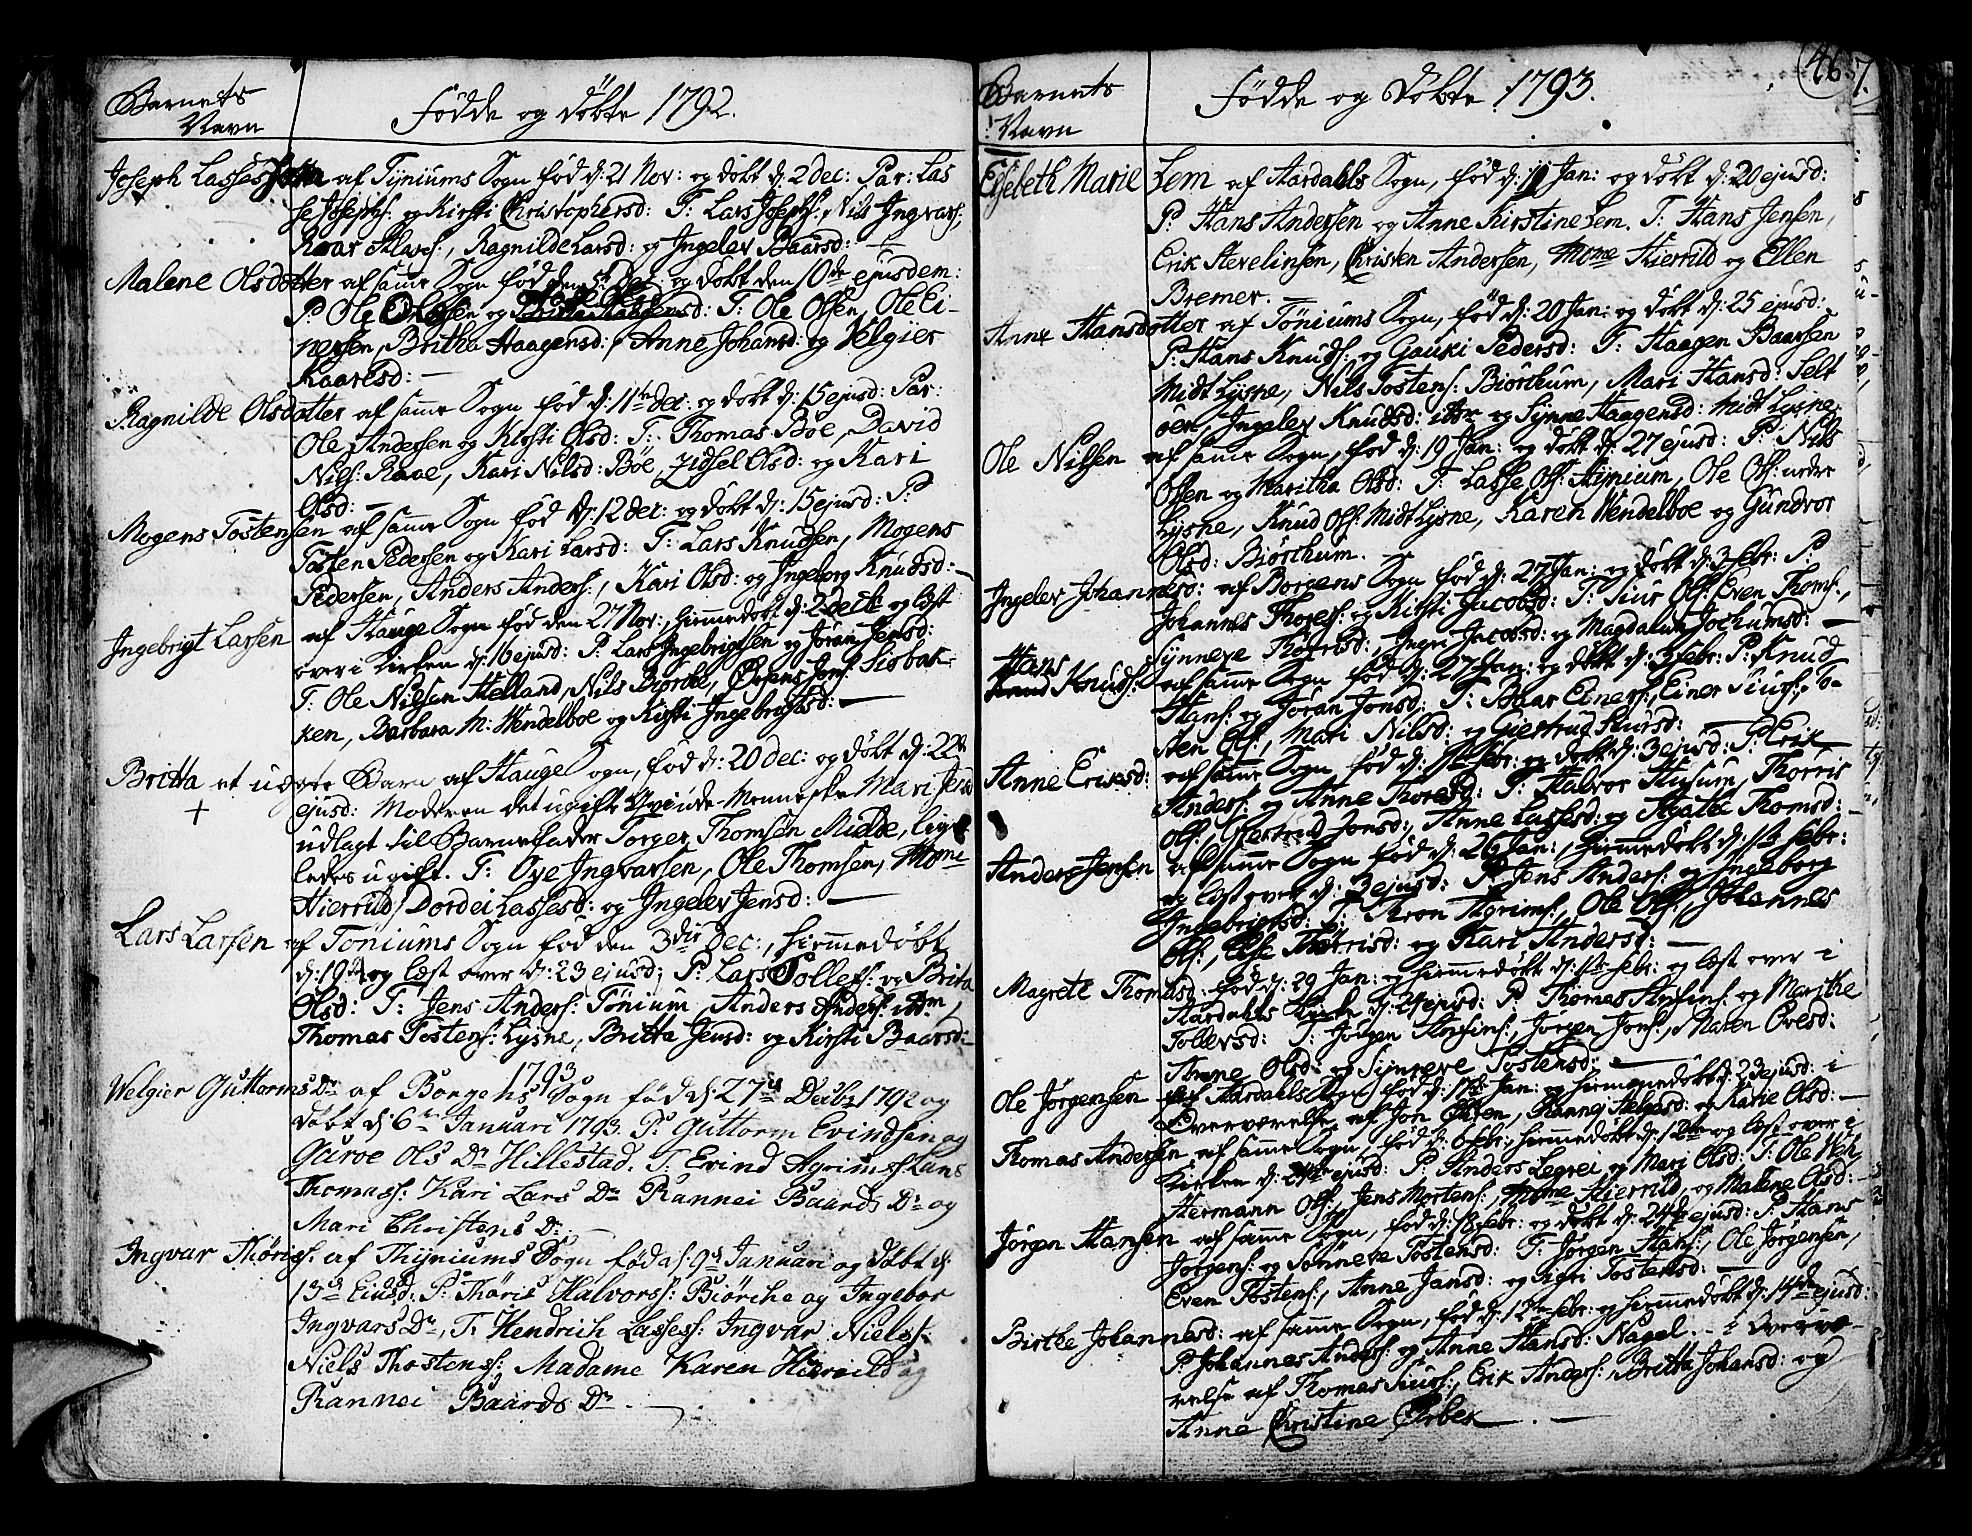 Barnets
Navn
Födde og döbte 1792.
Joseph Lasses af Tyniums Sogn föd d: 21 Nov: og döbt d: 2 dec: Par: Las
se Josephs: og Kirsti Christophersd: T: Lars Josephs:, Nils Ingvars:,
Ragnilde Larsd: og Ingelev Baarsd:
Malene Olsdotter af samme Sogn föd den og döbt den 10de ejusdem:
P: Ole og T: Ole Olsen, Ole Ei-
nersen, Britha Haagensd:, Anne Johansd: og Velgier
Kaarlsd: —
Ragnilde Olsdotter af samme Sogn föd d: 11te dec: og döbt d: 15 ejusd: Par:
Ole Andersen og Kirsti Olsd: T: Thomas Böe, David
Nils: Raae, Kari Nilsd: Böe, Zidsel Olsd: og Kari
Olsd: —
Mogens Tostensen af samme Sogn föd d: 12 dec: og döbt d: 15 ejusd: P:
Tosten Pedersen og Kari Larsd: T: Lars Knudsen, Mogens
Pedersen, Anders Anders:, Kari Olsd: og Ingeborg Knudsd: —
Ingebrigt Larsen af Hauge Sogn föd den 27 Nov:, hiemmedöbt d: 2 decbr og læst
over i Kirken d: 16 ejusd: P: Lars Ingebrigtsen og Jöran Jensd:
T: Ole Nilsen Helland, Nils Biörke, Jons: Lisbak-
ken, Barbara M: Wendelboe og Kirsti Ingebrigtsd: —
Britta et uægte Barn af Hauge Sogn, föd d: 20 dec: og döbt d: 22de
+ ejusd: Moderen det ugifte Qvinde-Menneske Mari Jens
udlagt til Barnefader Torger Thomsen Melde, lige-
ledes ugift. T: Oye Ingvarsen, Ole Thomsen, Mome
Hierrild, Dordei Lassesd: og Ingelev Jensd: —
Lars Larsen af Töniums Sogn föd den 3die dec:, hiemmedöbt
d: 19de og læst over d: 23 ejusd: P: Lars Tollefs: og Brita
Olsd: T: Jens Anders: Tönium, Anders Anders: ibm,
Thomas Tostens: Lysne, Britta Jensd: og Kirsti Baarsd: —
1793
Welgier Guttorms Dr af Borgens Sogn föd d 27de Decbr 1792 og
döbt d 6te Januari 1793. P: Guttorm Evindsen og
Guroe Ols Dr Hillestad. T: Evind Agrims: Lars
Thomass: Kari Lars Dr Rannei Baards Dr og
Mari Christens Dr —
Ingvar Thöris: af Thyniums Sogn föd d: 9de Januari og döbt d:
13de Eiusd: P: Thöris Halvors: Biörche og Ingebor
Ingvars Dr, T: Hendrich Lasses: Ingvar Niels:
Niels Thostens: Madame Karen Hierrild og
Rannei Baards Dr —
Barnets
Navn
Födde og Döbte 1793.
467.
Elsebeth Marie Lem af Aardahls Sogn, föd d: 11 Jan: og döbt d: 20 ejusd:
P: Hans Andersen og Anne Kirstine Lem. T: Hans Jensen,
Erik Stevelinsen, Christen Andersen, Mome Hierrild og Ellen
Bremer. —
Anne Hansdotter af Töniums Sogn, föd d: 20 Jan: og döbt d: 25 ejusd:
P: Hans Knuds: og Gauki Pedersd: T: Haagen Baarsen
Midt Lysne, Nils Tostens: Biörkum, Mari Hansd: Selt
öen, Ingelev Knudsd: ibm og Synne Haagensd: Midt Lysne.
Ole Nilsen af samme Sogn, föd d: 19 Jan: og döbt d: 27 ejusd: P: Nils
Olsen og Maritha Olsd: T: Lasse Ols: Tynium, Ole Ols: nedre
Lysne, Knud Ols: Midt Lysne, Karen Wendelboe og Gundvor
Olsd: Biörkum. —
Ingelev Johannesd: af Borgens Sogn föd d: 27 Jan: og döbt d: 3 febr: P:
Johannes Thores: og Kirsti Jacobsd: T: Siur Ols: Even Thoms:,
Synneve Thörrisd:, Ingri Jacobsd: og Magdalena Jochumsd: —
Hans
Knuds: af samme Sogn föd d: 27 Jan: og döbt d: 3 febr: P: Knud
Hans: og Jöran Jonsd: T: Baar Einers:, Einer Siurs:, To-
sten Ols:, Mari Nilsd: og Giertrud Siursd: —
Anne Eriksd: af samme Sogn föd d: 1ste febr: og döbt d: 3 ejusd: P: Erik
Anders: og Anne Thoresd: T: Halvor Husum, Thorris
Ols:, Giertrud Jonsd:, Anne Lassesd: og Agathe Thomsd:
Anders Jensen af samme Sogn föd d: 26 Jan:, hiemmedöbt d: 1ste febr:
og læst over d: 3 ejusd: P: Jens Anders: og Ingeborg
Ingebrigtsd: T: Aron Agrims:, Ole Ols:, Johannes
Ols:, Else Thörrisd: og Kari Andersd: —
Magrete Thomasd: föd d: 29 Jan: og hiemmedöbt d: 1ste febr: og læst over i
Aardahls Kirke d: 24 ejusd: P: Thomas Anfins: og Marithe
Tollevsd: T: Jörgen Anfins:, Jörgen Jons:, Maren Ovesd:
Anne Olsd: og Synneve Tostensd: —
Ole Jörgensen af Aardahls Sogn föd d: 17de Jan: og hiemmedöbt d: 23 ejusd: i
Overværelse af Jon Rannej Helgesd: og Karie Olsd: —
Thomas Andersen af samme Sogn, föd d: 6 febr: hiemmedöbt d: 12te og læst over i
Kirken d: 24de ejusd: P: Anders Legrei og Mari Olsd: T: Ole Veh,
Hermann Ols:, Jens Mortens:, Mome Hierrild, og Malene Olsd: —
Jörgen Hansen af samme Sogn, föd d: 18 febr: og döbt d: 24de ejusd: P: Hans
Jörgens: og Sönneve Tostensd: T: Jörgen Hans:, Ole Jörgensen,
Even Tostens:, Anne Jansd: og Sigri Tostensd: —
Birthe Johannesd: af samme Sogn, föd d: 12te febr: og hiemmedöbt d: 14de ejusd:
P: Johannes Anders: og Anne Hansd: Nagel. — i Overvæ-
relse af Thomas Siurs:, Erik Anders: Britta Johansd: og
Anne Christine Örbek —